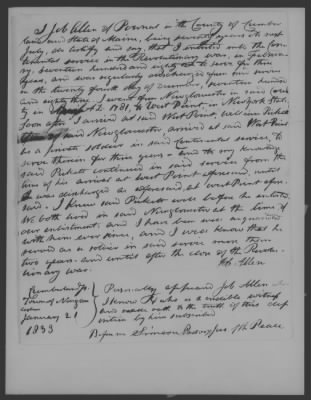 I Job Allen of Pownal in the County of Cumber
land and State of Maine, being seventy years old next
July, do testify and say, that I enlisted into the Con-
tinental service in the Revolutionary war, in February
seventeen hundred and eighty one to serve for three
years, and was regularly discharged from said service
on the twenty fourth day of December, seventeen hundred
and eighty three. I went from Newgloucester in said County
in 1781, to West Point, in New York State.
Soon after I arrived at said West Point, William Pickett
of said Newgloucester, arrived at said West Point
as a private soldier in said Continental service, to
serve therein for three years. And to my knowledge
said Pickett continued in said service from the
time of his arrival at West Point aforesaid, until
I was discharged as aforesaid, at West Point afore
said. I knew said Pickett well before he enlisted,
We both lived in said Newgloucester at the time of
our enlistment, and I have been well acquainted
with him ever since, and I well know that he
served as a soldier in said service more than
two years and until after the close of the Revolu
tionary war.
Job Allen
Cumberland ss.
Town of
January 21
1833
Personally appeared Job Allen
I know & who is a credible witness
and made oath to the truth of this dep
osition by him subscribed
Before Justice of the Peace